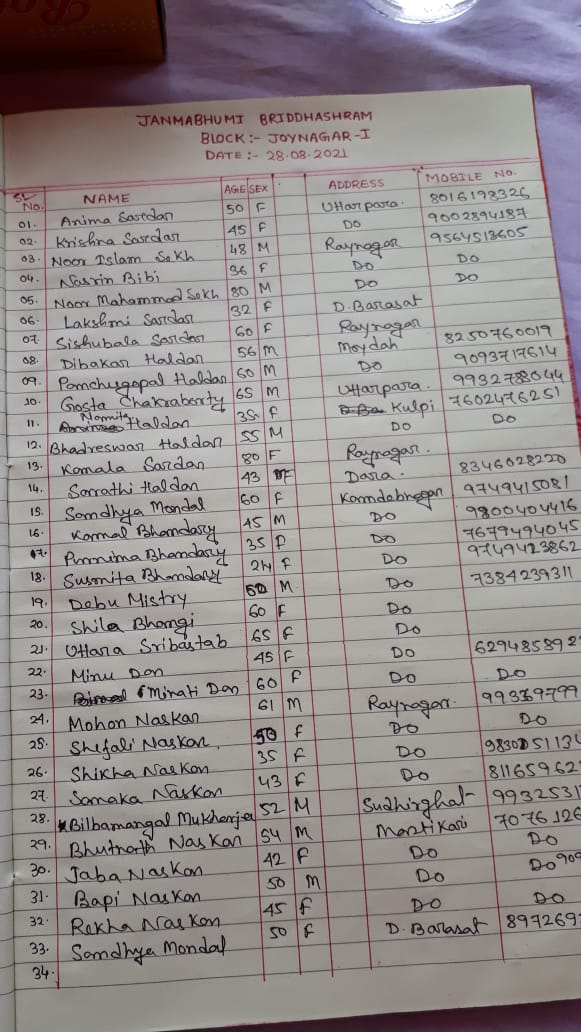 JANMABHUMI BRIDDHASHRAM
BLOCK :- JOYNAGAR-I
DATE :- 28.08.2021
SL No. NAME AGE SEX ADDRESS MOBILE NO.
01. Anima Sardar 50 F Uttarpara. 8016198326
02. Krishna Sardar 45 F Do 9002894187
03. Noor Islam Sekh 48 M Raynagar 9564513605
04. Nasrin Bibi 36 F Do Do
05. Noor Mahammod Sekh 80 M Do Do
06. Lakshmi Sardar 32 F D. Barasat
07. Sishubala Sardar 60 F Raynagar
08. Dibakar Haldar 56 M Moydah 8250760019
09. Panchugopal Haldar 60 M Do 9093717614
10. Gosta Chakraborty 65 M Uttarpara. 9932788044
11. Namita Haldar 35 F Kulpi 7602476251
12. Bhadreswar Haldar 55 M Do Do
13. Kamala Sardar 80 F Raynagar.
14. Sarathi Haldar 43 F Dara. 8346028220
15. Sandhya Mondal 60 F Kamdebnagar 9749415081
16. Kamal Bhandary 45 M Do 9800404416
17. Purnima Bhandary 35 F Do 7679494045
18. Susmita Bhandary 24 F Do 9749123862
19. Debu Mistry 50 M Do 7384239311
20. Shila Bhangi 60 F Do
21. Uttara Sribastab 65 F Do
22. Minu Dan 45 F Do 629485892
23. Minati Dan 60 F Do Do
24. Mohon Naskar 61 M Raynagar.
25. Shefali Naskar. 50 F Do Do
26. Shikha Naskar 35 F Do
27. Samaka Naskar 43 F Do 81165962
28. Bilbamangal Mukherjee 52 M Sudhirghat 9932531
29. Bhutnath Naskar 54 M Mastikari 7076126
30. Jaba Naskar 42 F Do Do
31. Bapi Naskar 50 M Do Do 909
32. Rekha Naskar 45 F Do Do
33. Sandhya Mondal 50 F D. Barasat 897269
34.